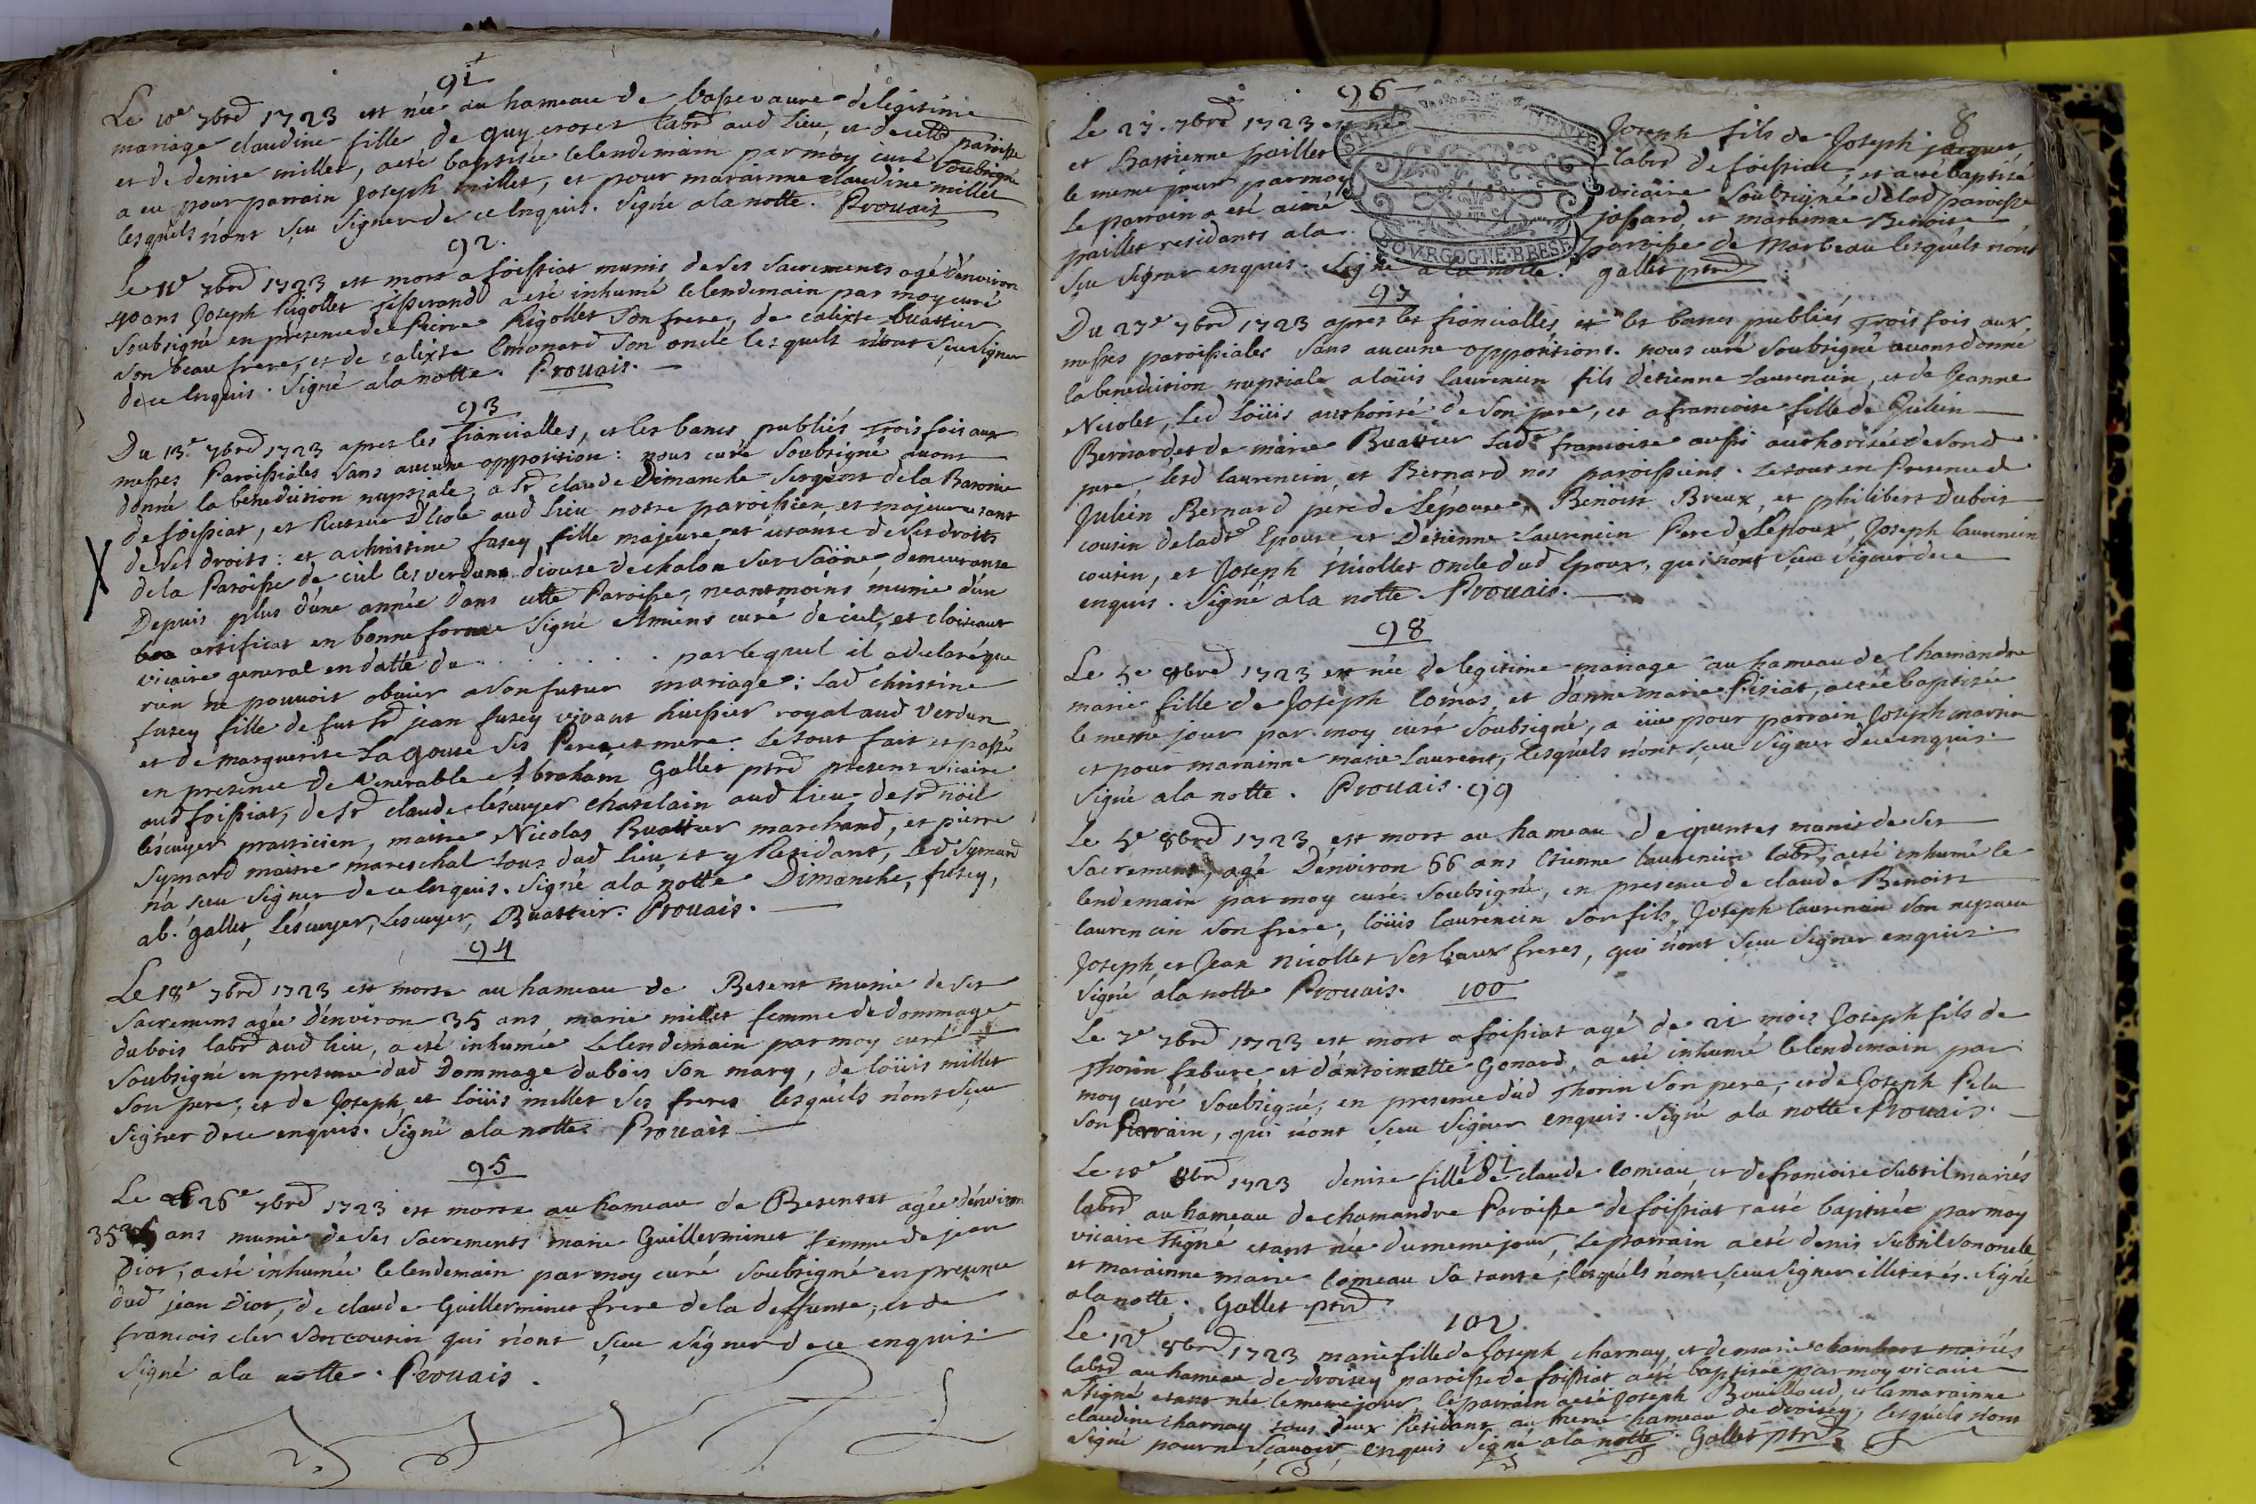 91
Le 10e 7bre 1723 est née au hameau de bassevavre de légitime
mariage claudine fille de guy croset labr aud lieu, et de cette paroisse
et de denise millet, a eté baptisée le lendemain par moy curé soubsigné
a eu pour parrain Joseph millet, et pour marainne claudine millet
lesquels n'ont sçu signer de ce Enquis. Signé a la notte. Prouais
92.
Le 11e 7bre 1723 est mort a foissiat munis de ses sacrements agé d'environ
40 ans Joseph Rigollet tisserand a eté inhumé le lendemain par moy curé
soubsigné en presence de Pierre Rigollet son frere, de calixte buattier
son beau frere, et de calixte son oncle lesquels n'ont sçu signer
de ce Enquis. Signé a la notte. Prouais.
93
Du 13e 7bre 1723 apres les fiancialles, et les bancs publiés Trois fois aux
messes Paroissiales sans aucune opposition: nous curé soubsigné avons
donné la benediction nuptiale, a Sr claude Dimanche sergent de la Baronie
de foissiat, et Recteur d'Ecole aud lieu notre paroissien et majeur usant
de ses droits: et a christine fusey fille majeure et usante de ses droits
de la Paroisse de ciel les verdun diocese de chalon sur saône, demeurante
Depuis plus d'une année dans cette Paroisse, neantmoins munie d'un
certificat en bonne forme signé Amiens curé de ciel, et cloiseaut
vicaire general en datte du . . . . . . . par lequel il a declaré que
rien ne pouvoit obvier a son futur mariage: Lad christine
fusey fille de fut Sr jean fusey vivant huissier royal aud Verdun
et de marguerite La goute ses Pere et mere. Le tout fait et passé
en presence de Venerable Abraham Gallet ptre present vicaire
aud foissiat, de Sr claude lécuyer chatelain aud lieu de Sr nöel
lécuyer praticien, maitre Nicolas Buattier marchand, et pierre
Symard maitre mareschal tous dud lieu et y Residant, Led Symard
n'a sceu signer de ce Enquis. Signé a la notte Dimanche, fusey,
ab. gallet, Lécuyer, Lecuyer, Buattier. Prouais.
94
Le 18e 7bre 1723 est morte au hameau de Besent munie de ses
sacremens agée d'environ 35 ans marie millet femme de dommage
dubois labr aud lieu, a eté inhumée le lendemain par moy curé
soubsigné en presence dud Dommage dubois son mary, de loüis millet
son pere, et de Joseph et loüis millet ses freres lesquels n'ont sçeu
signer de ce enquis. Signé a la notte Prouais
95
Le 26e 7bre 1723 est morte au hameau de Besentet agée d'environ
35 ans munie de ses sacrements marie Guillerminet femme de jean
Diot, a eté inhumée le lendemain par moy curé soubsigné en presence
dud jean Diot, de claude Guillerminet frere de la deffunte, et de
francois cler son cousin qui n'ont sçeu signer de ce enquis.
Signé a la notte. Prouais.
8
96
Le 27. 7bre 1723 est né Joseph fils de Joseph jacquet
et Bastienne paillet labr de foissiat, et a eté baptisé
le meme jour par moy vicaire soubsigné de lad paroisse
Le parrain a eté aimé jossard et marenne Benoite
paillet residants a la paroisse de Marbeau lesquels n'ont
sçu signer enquis. Signé a la notte. gallet ptre
BOVRGOGNE BRESSE
97
Du 27e 7bre 1723 apres les fiancialles, et les bancs publiés Trois fois aux
messes paroissiales sans aucune opposition. nous curé soubsigné avons donné
la benediction nuptiale a loüis laurencin fils d'etienne Laurencin, et de Jeanne
Nicolet, Led Loüis authorisé de son pere, et a francoise fille de Julien
Bernard, et de marie Buattier Lade francoise aussi authorisée de sond
pere, lesd laurencin, et Bernard nos paroissiens. Le tout en Presence de
Julien Bernard pére de L'épouse, Benoist Breux, et philibert Dubois
cousin de ladte Epouse et D'etienne Laurencin Pere de L'epoux, Joseph laurencin
cousin, et Joseph nicollet oncle dud Epoux, qui n'ont sçeu signer de ce
enquis. Signé a la notte Prouais.
98
Le 5e 8bre 1723 est née de legitime mariage au hameau de Chamandre
marie fille de Joseph Comas, et d'anne marie Pisiat, a eté baptisée
le meme jour par moy curé soubsigné, a eüe pour parrain Joseph martin
et pour marainne marie Laurent, lesquels n'ont sçeu signer de ce enquis.
Signé a la notte. Prouais.
99
Le 5e 8bre 1723 est mort au hameau de munis de ses
sacrements, agé D'environ 66 ans Etienne laurencin labr, a eté inhumé le
lendemain par moy curé soubsigné, en presence de claude Benoist
laurencin son frere, loüis laurencin son fils, Joseph laurencin son nepveu
Joseph, et Jean nicollet ses beaux freres, qui n'ont sçeu signer enquis.
Signé a la notte Prouais.
100
Le 7e 7bre 1723 est mort a foissiat agé de 21 mois Joseph fils de
Thorin faburé et d'antoinette Gonard, a eté inhumé le lendemain par
moy curé soubsigné, en presence dud Thorin son pere, et de Joseph Pela
son Parrain, qui n'ont sçeu signer enquis. Signé a la notte Prouais.
101
Le 10e 8bre 1723 denise fille de claude comeau, et de francoise subtil mariés
labrs au hameau de chamandre Paroisse de foissiat, a eté baptisée par moy
vicaire ssigné etant née du meme jour, Le parrain a eté denis subtil son oncle
et marainne marie Comeau sa tante, lesquels n'ont sçeu signer illiterés. Signé
a la notte. Gallet ptre
102
Le 12e 8bre 1723 marie fille de Joseph charnay, et de marie chambart mariés
labrs au hameau de droisey paroisse de foissiat a eté baptisée par moy vicaire
ssigné etant née le meme jour, le parrain a eté Joseph Bouilloud, et la marainne
claudine charnay tous deux Residants au meme hameau de droisey, lesquels n'ont
signé pour ne sçavoir, enquis signé a la notte. Gallet ptre